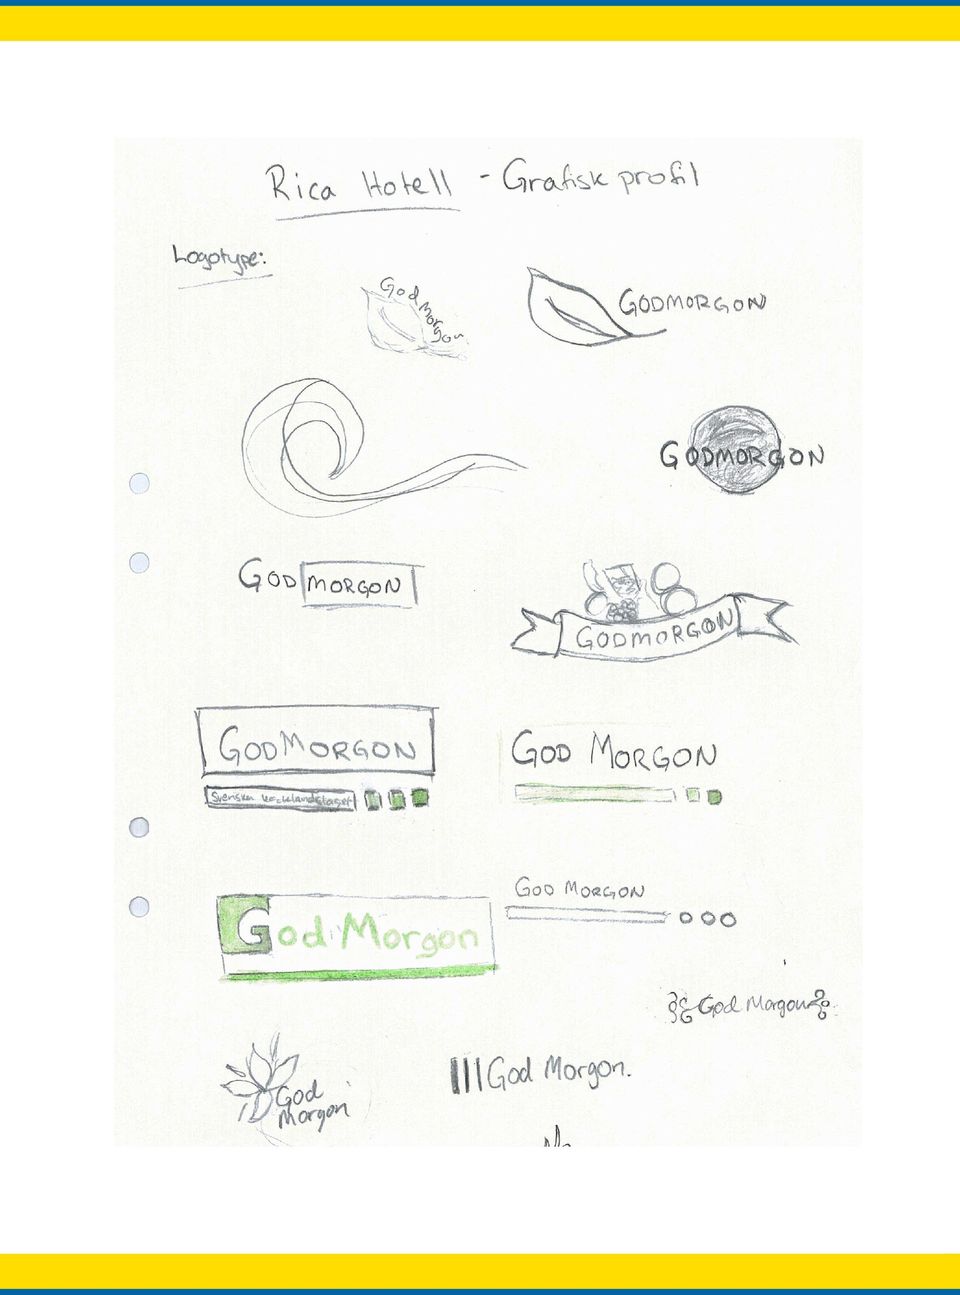 Rica Hotell - Grafisk profil
Logotype:
God Morgon
GODMORGON
GODMORGON
GOD MORGON
GODMORGON
GODMORGON
Svenska kocklandslaget
GOD MORGON
God Morgon
GOD MORGON
God Morgon
God Morgon
God Morgon.